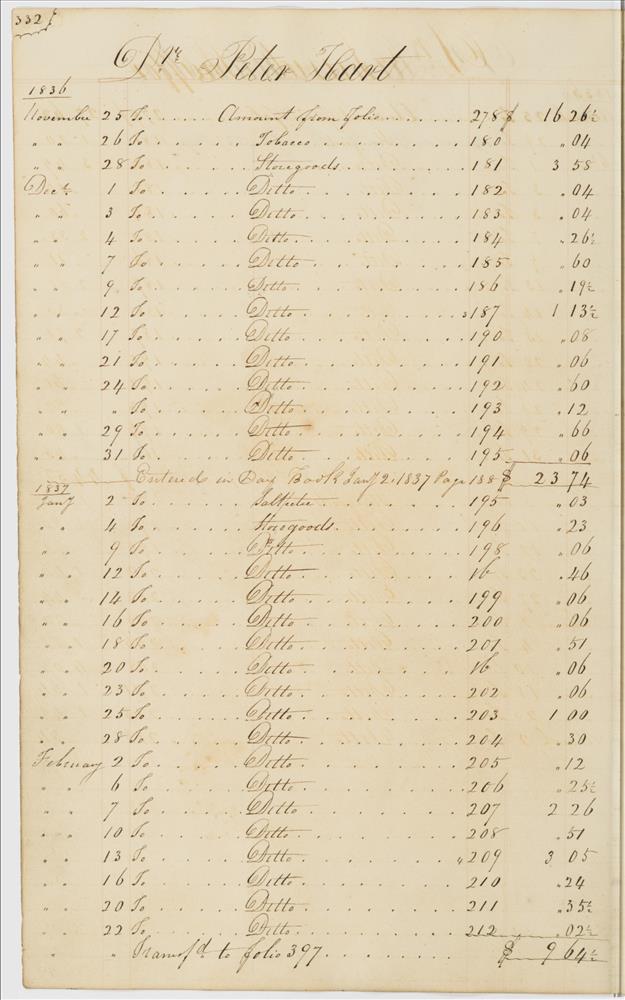 332
Dr. Peter Hart
1836
November 25 To Amount from folio 278 $ 16 26½
" " 26 To Tobacco 180 " 04
" " 28 To Storegoods 181 3 58
Decr. 1 To Ditto 182 " 04
" " 3 To Ditto 183 " 04
" " 4 To Ditto 184 " 26½
" " 7 To Ditto 185 " 60
" " 9 To Ditto 186 " 19½
" " 12 To Ditto 187 1 13½
" " 17 To Ditto 190 " 08
" " 21 To Ditto 191 " 06
" " 24 To Ditto 192 " 60
" " " To Ditto 193 " 12
" " 29 To Ditto 194 " 66
" " 31 To Ditto 195 " 06
Entered in Day Book Jany 2. 1837 Page 138 $ 23 74
1837
Jany 2 To Saltpetre 195 " 03
" " 4 To Storegoods 196 " 23
" " 9 To Ditto 198 " 06
" " 12 To Ditto ib " 46
" " 14 To Ditto 199 " 06
" " 16 To Ditto 200 " 06
" " 18 To Ditto 201 " 51
" " 20 To Ditto ib " 06
" " 23 To Ditto 202 " 06
" " 25 To Ditto 203 1 00
" " 28 To Ditto 204 " 30
February 2 To Ditto 205 " 12
" " 6 To Ditto 206 " 25½
" " 7 To Ditto 207 2 26
" " 10 To Ditto 208 " 51
" " 13 To Ditto " 209 3 05
" " 16 To Ditto 210 " 24
" " 20 To Ditto 211 " 35½
" " 22 To Ditto 212 " 02½
" " Transfd. to folio 397 $ 9 64½